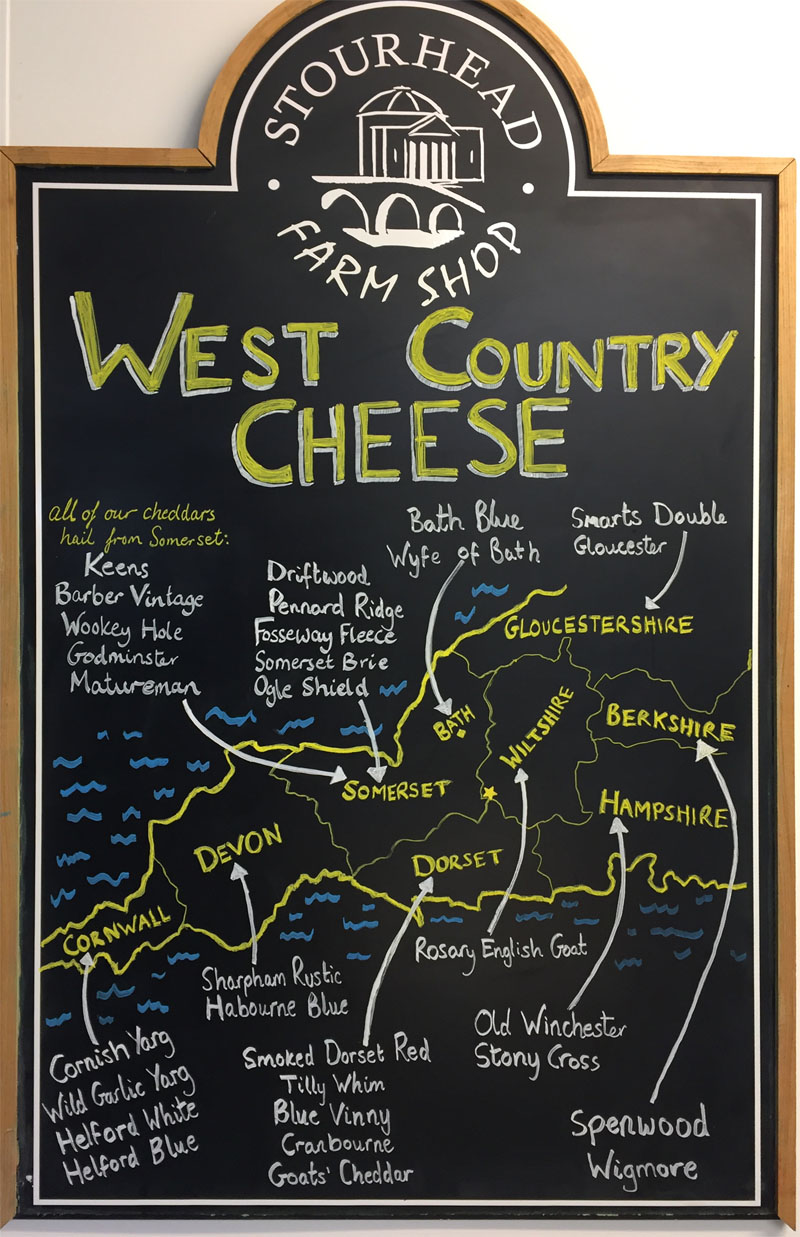 STOURHEAD
FARM SHOP
WEST COUNTRY
CHEESE
all of our cheddars
hail from Somerset:
Keens
Barber Vintage
Wookey Hole
Godminster
Matureman
Driftwood
Pennard Ridge
Fosseway Fleece
Somerset Brie
Ogle Shield
Bath Blue
Wyfe of Bath
Smarts Double
Gloucester
GLOUCESTERSHIRE
BATH
WILTSHIRE
BERKSHIRE
SOMERSET
HAMPSHIRE
DEVON
DORSET
CORNWALL
Rosary English Goat
Sharpham Rustic
Habourne Blue
Old Winchester
Stony Cross
Cornish Yarg
Wild Garlic Yarg
Helford White
Helford Blue
Smoked Dorset Red
Tilly Whim
Blue Vinny
Cranbourne
Goats' Cheddar
Spenwood
Wigmore